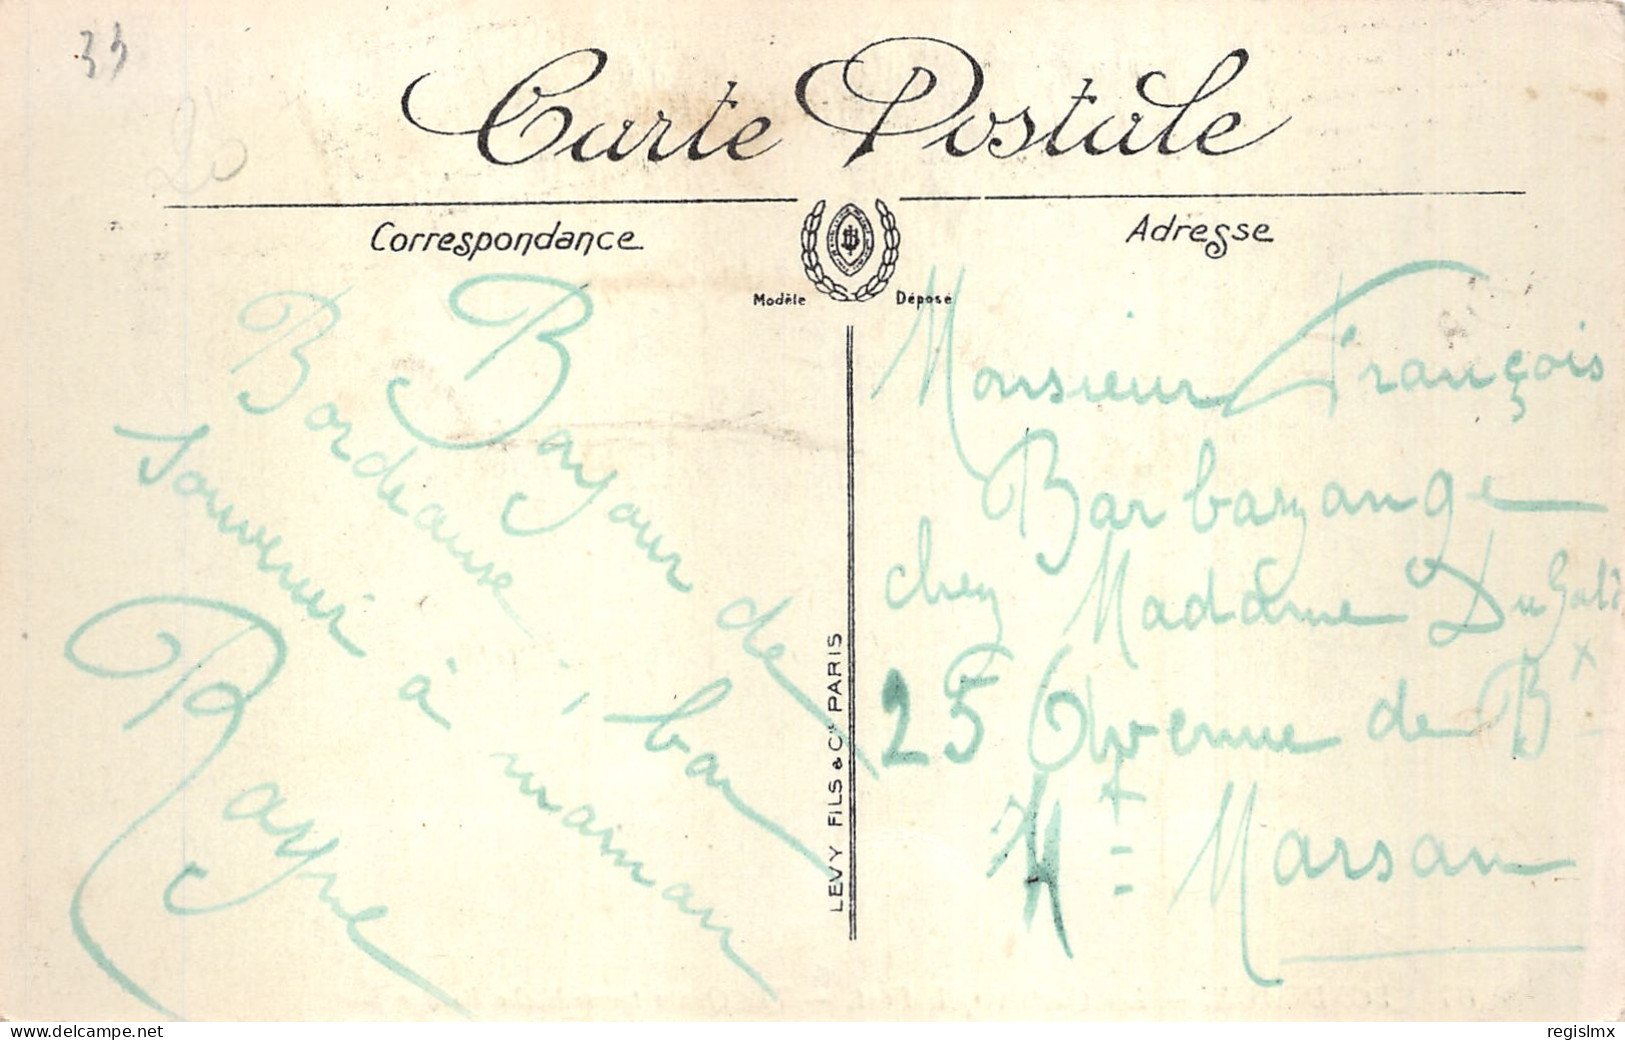 33
20
Carte Postale
Correspondance
Adresse
Modèle Déposé
Bonjour de
Bordeaux, bon
souvenir à maman
Rayne
LEVY FILS & Cie PARIS
Monsieur François
Barbazange
chez Madame Dugald
25 Avenue de Bx
Mt = Marsan
www.delcampe.net
regislmx